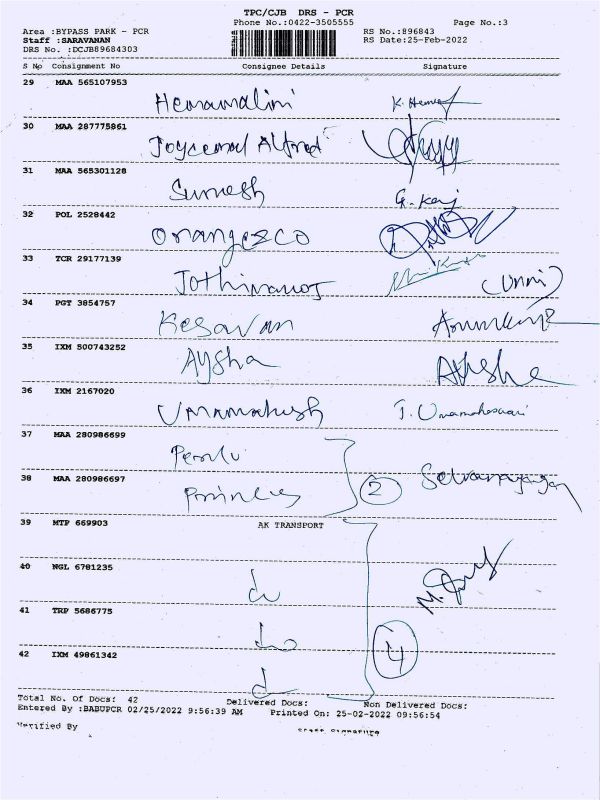 TPC/CJB DRS - PCR
Phone No.:0422-3505555 Page No.:3
Area :BYPASS PARK - PCR RS No.:896843
Staff :SARAVANAN RS Date:25-Feb-2022
DRS No. :DCJB89684303
S No Consignment No Consignee Details Signature
29 MAA 565107953
Hemamalini K. Hema
30 MAA 287775861
Alfred
31 MAA 565301128
Sumesh
32 POL 2528442
Orangezco
33 TCR 29177139
Jothimanoj (Unni)
34 PGT 3854757
Kesavan Arunkumar
35 IXM 500743252
Aysha
36 IXM 2167020
Umamahesh J. Umamaheswari
37 MAA 280986699
38 MAA 280986697
Princes 2
39 MTP 669903 AK TRANSPORT
40 NGL 6781235
41 TRP 5686775
4
42 IXM 49861342
Total No. Of Docs: 42 Delivered Docs: Non Delivered Docs:
Entered By :BABUPCR 02/25/2022 9:56:39 AM Printed On: 25-02-2022 09:56:54
Verified By Staff Signature